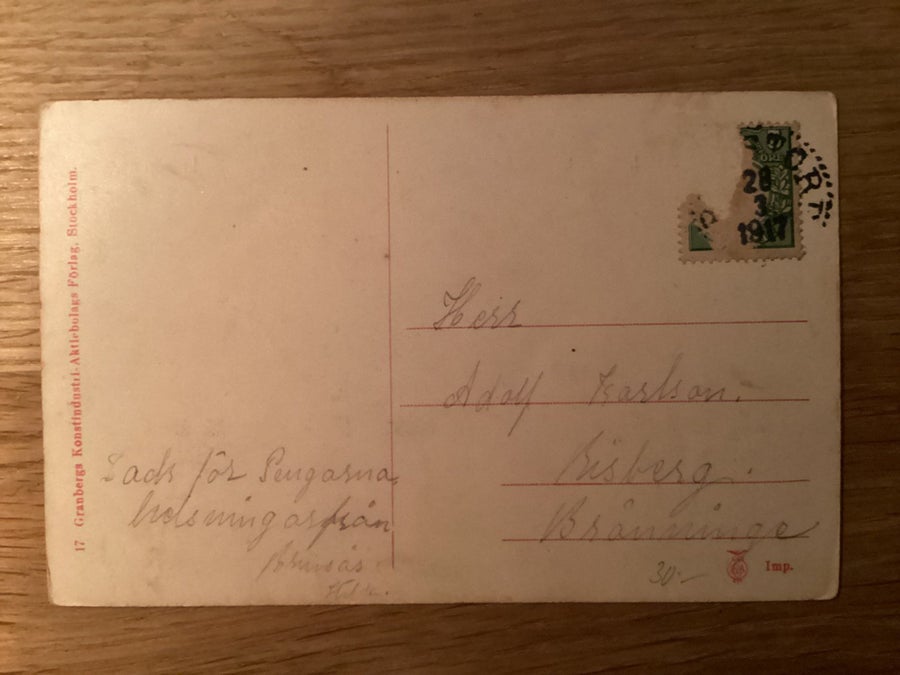 17 Granbergs Konstindustri-Aktiebolags Förlag, Stockholm.
ÖRE
28
3
1917
Herr
Adolf Karlson.
Bisberg.
Bränninge
Tack för Pengarna
helsningar från
30:-
Imp.